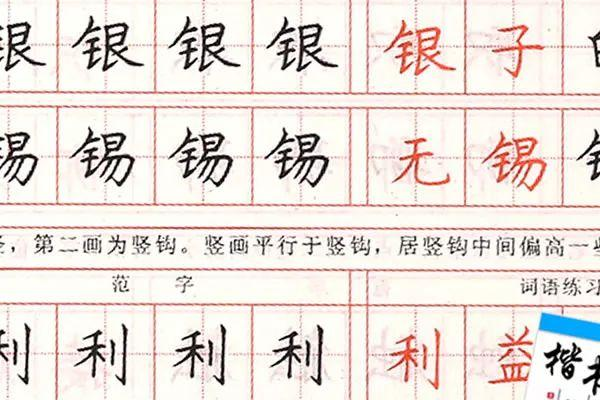 银 银 银 银 银 子
锡 锡 锡 锡 无 锡
，第二画为竖钩。竖画平行于竖钩，居竖钩中间偏高一些
范 字 词语练习
利 利 利 利 利 益
楷